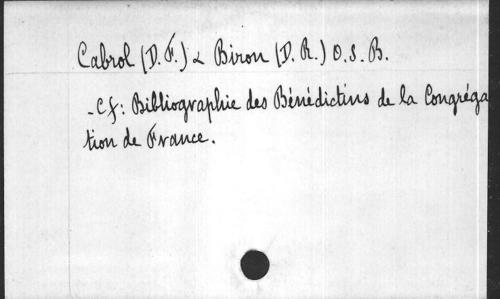 Cabrol (D. F.) & Biron (D. R.) O. S. B.
- Cf: Bibliographie des Bénédictins de la Congréga
tion de France.